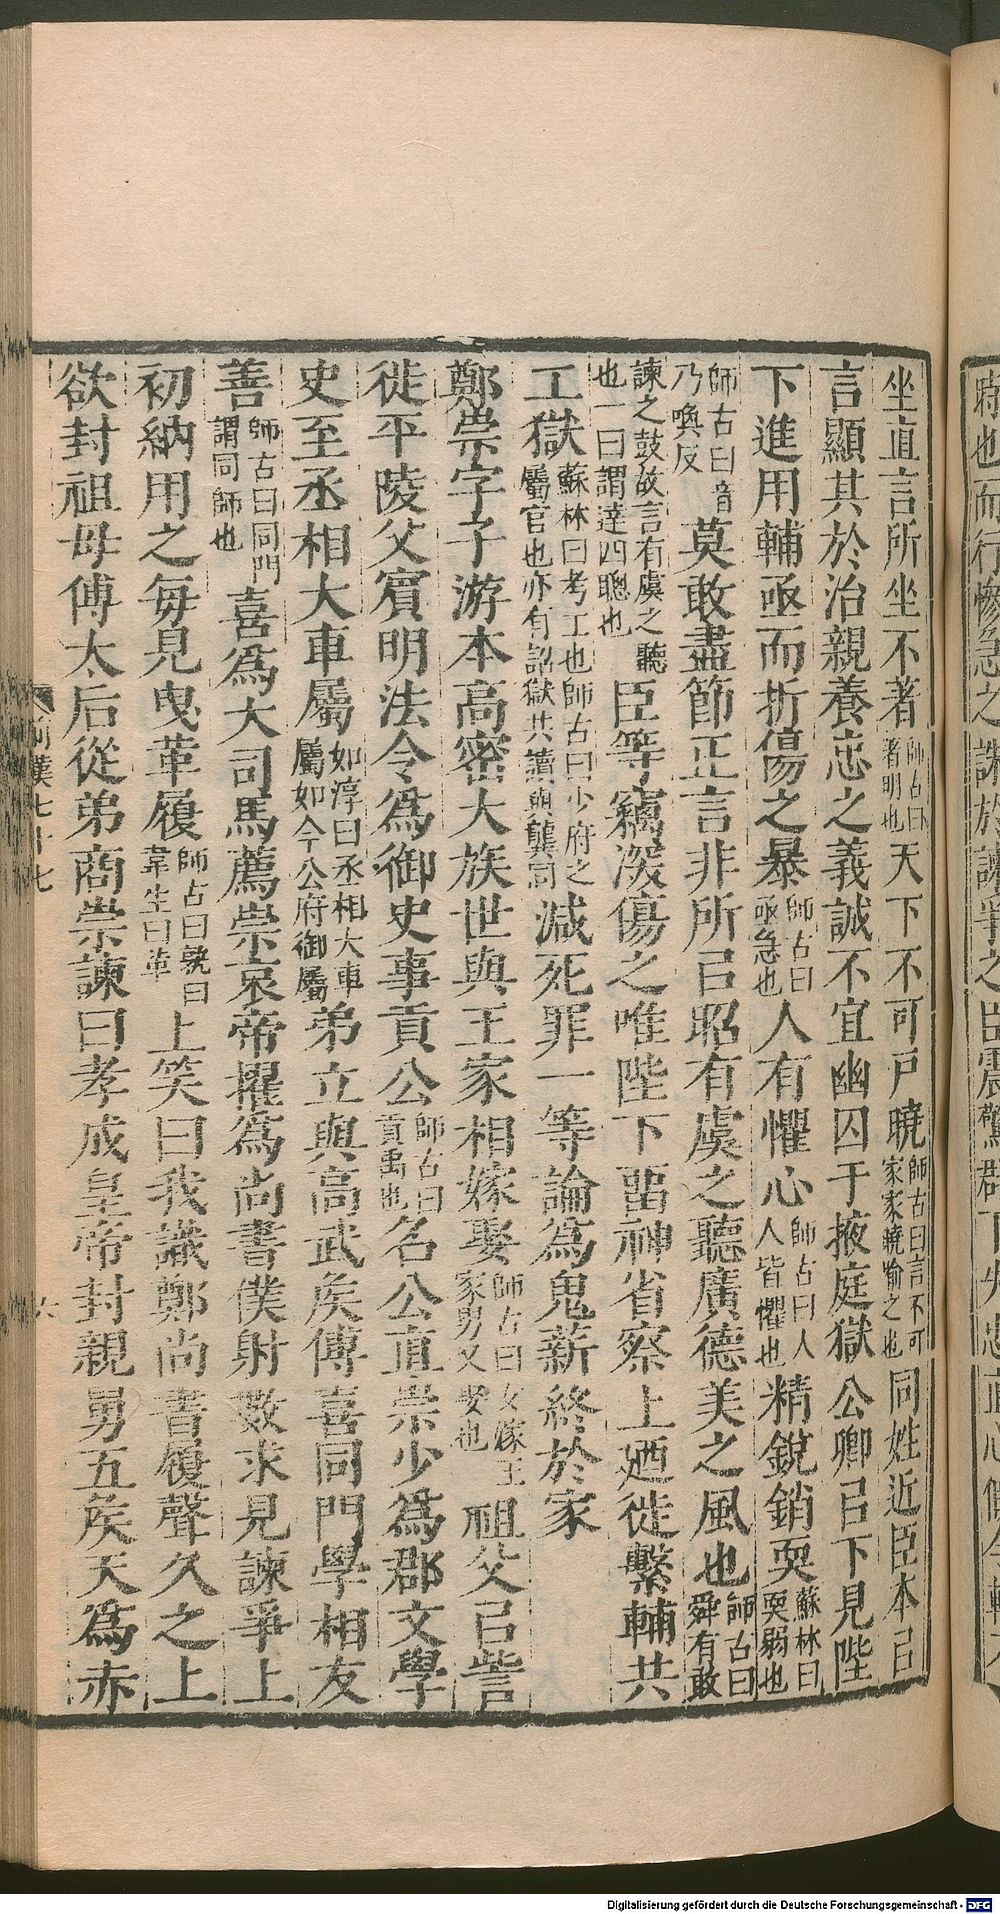 坐直言所坐不著師古曰著明也天下不可戶曉師古曰言不可家家曉喻之也同姓近臣本㠯
言顯其於治親養忠之義誠不宜幽囚于掖庭獄公卿㠯下見陛
下進用輔亟而折傷之暴師古曰亟急也人有懼心師古曰人人皆懼也精銳銷耎蘇林曰耎弱也
師古曰音乃喚反莫敢盡節正言非所㠯昭有虞之聽廣德美之風也師古曰舜有敢
諫之鼓故言有虞之聽也一曰謂達四聰也臣等竊深傷之唯陛下畱神省察上廼徙繫輔共
工獄蘇林曰考工也師古曰少府之屬官也亦有詔獄共讀與龔同減死罪一等論為鬼薪終於家
鄭崇字子游本高密大族世與王家相嫁娶師古曰女嫁王家男又娶也祖父㠯訾
徙平陵父賓明法令為御史事貢公師古曰貢禹也名公直崇少為郡文學
史至丞相大車屬如淳曰丞相大車屬如今公府御屬弟立與高武矦傅喜同門學相友
善師古曰同門謂同師也喜為大司馬薦崇哀帝擢為尚書僕射數求見諫爭上
初納用之每見曳革履師古曰孰曰韋生曰革上笑曰我識鄭尚書履聲久之上
欲封祖母傅太后從弟商崇諫曰孝成皇帝封親舅五矦天為赤
前漢七十七
六